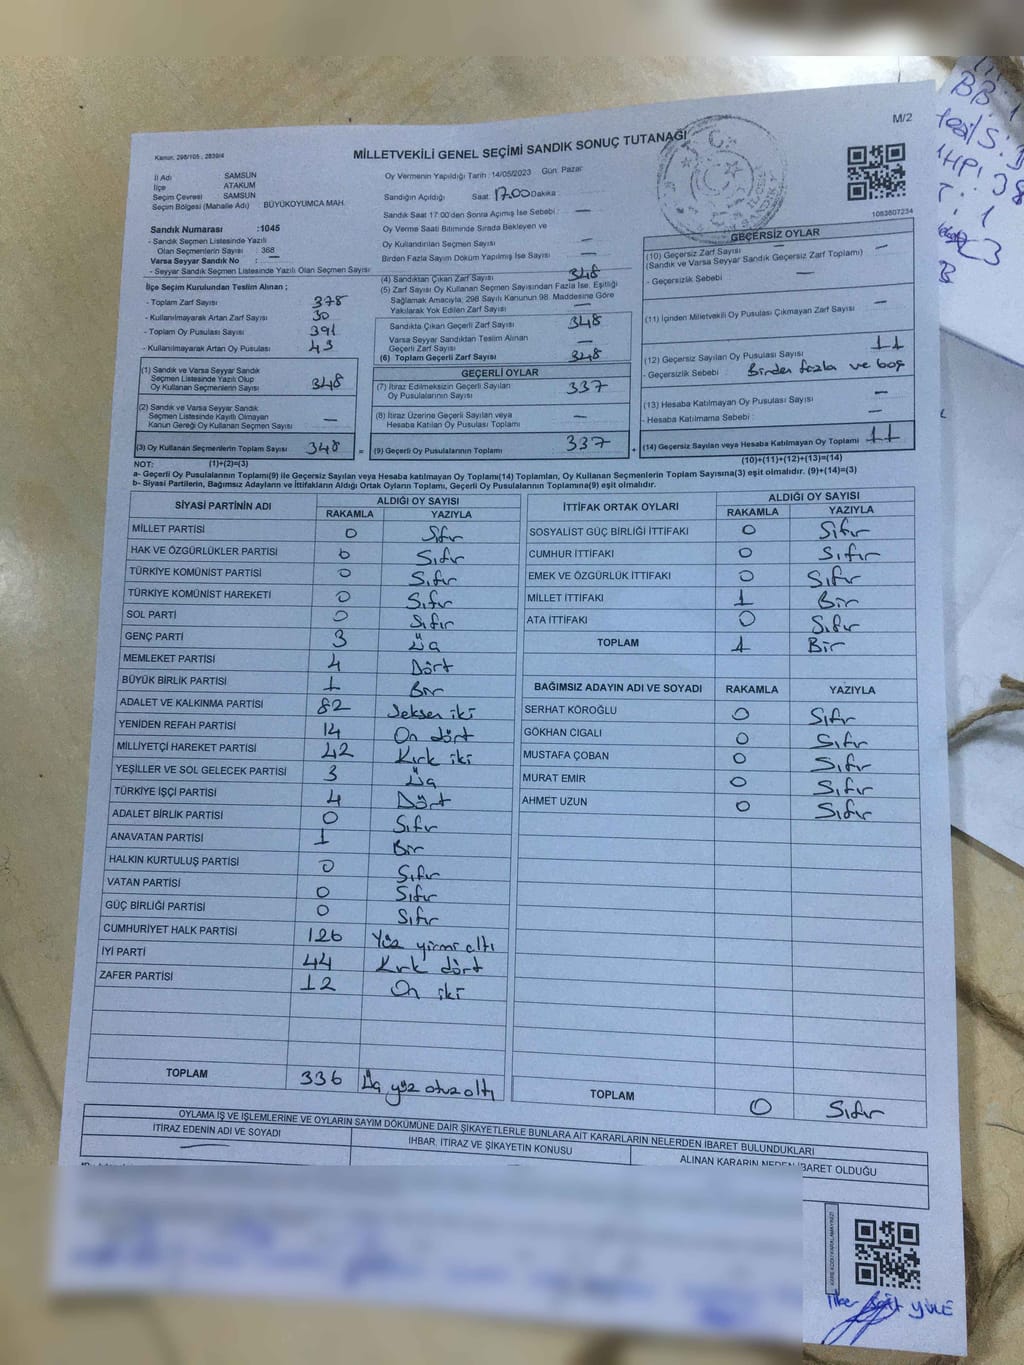 M/2
Kanun; 298/105 , 2839/4
MİLLETVEKİLİ GENEL SEÇİMİ SANDIK SONUÇ TUTANAĞI
İl Adı SAMSUN
İlçe ATAKUM
Seçim Çevresi SAMSUN
Seçim Bölgesi (Mahalle Adı) BÜYÜKOYUMCA MAH.
Sandık Numarası :1045
- Sandık Seçmen Listesinde Yazılı
Olan Seçmenlerin Sayısı : 368
Varsa Seyyar Sandık No : —
- Seyyar Sandık Seçmen Listesinde Yazılı Olan Seçmen Sayısı
İlçe Seçim Kurulundan Teslim Alınan ;
- Toplam Zarf Sayısı : 378
- Kullanılmayarak Artan Zarf Sayısı : 30
- Toplam Oy Pusulası Sayısı : 391
- Kullanılmayarak Artan Oy Pusulası : 43
(1) Sandık ve Varsa Seyyar Sandık
Seçmen Listesinde Yazılı Olup
Oy Kullanan Seçmenlerin Sayısı 348
(2) Sandık ve Varsa Seyyar Sandık
Seçmen Listesinde Kayıtlı Olmayan
Kanun Gereği Oy Kullanan Seçmen Sayısı —
(3) Oy Kullanan Seçmenlerin Toplam Sayısı 348 =
Oy Vermenin Yapıldığı Tarih : 14/05/2023 Gün: Pazar
Sandığın Açıldığı Saat: 17.00 Dakika :
Sandık Saat 17:00'den Sonra Açımış İse Sebebi : —
Oy Verme Saati Bitiminde Sırada Bekleyen ve
Oy Kullandırılan Seçmen Sayısı —
Birden Fazla Sayım Döküm Yapılmış İse Sayısı —
(4) Sandıktan Çıkan Zarf Sayısı 348
(5) Zarf Sayısı Oy Kullanan Seçmen Sayısından Fazla İse, Eşitliği
Sağlamak Amacıyla, 298 Sayılı Kanunun 98. Maddesine Göre
Yakılarak Yok Edilen Zarf Sayısı —
Sandıkta Çıkan Geçerli Zarf Sayısı 348
Varsa Seyyar Sandıktan Teslim Alınan
Geçerli Zarf Sayısı —
(6) Toplam Geçerli Zarf Sayısı 348
GEÇERLİ OYLAR
(7) İtiraz Edilmeksizin Geçerli Sayılan
Oy Pusulalarının Sayısı 337
(8) İtiraz Üzerine Geçerli Sayılan veya
Hesaba Katılan Oy Pusulası Toplamı —
(9) Geçerli Oy Pusulalarının Toplamı 337 +
1063807234
GEÇERSİZ OYLAR
(10) Geçersiz Zarf Sayısı —
(Sandık ve Varsa Seyyar Sandık Geçersiz Zarf Toplamı) —
- Geçersizlik Sebebi : —
(11) İçinden Milletvekili Oy Pusulası Çıkmayan Zarf Sayısı —
(12) Geçersiz Sayılan Oy Pusulası Sayısı 11
- Geçersizlik Sebebi : Birden fazla ve boş
(13) Hesaba Katılmayan Oy Pusulası Sayısı —
- Hesaba Katılmama Sebebi : —
(14) Geçersiz Sayılan veya Hesaba Katılmayan Oy Toplamı 11
(10)+(11)+(12)+(13)=(14)
NOT: (1)+(2)=(3)
a- Geçerli Oy Pusulalarının Toplamı(9) ile Geçersiz Sayılan veya Hesaba katılmayan Oy Toplamı(14) Toplamları, Oy Kullanan Seçmenlerin Toplam Sayısına(3) eşit olmalıdır. (9)+(14)=(3)
b- Siyasi Partilerin, Bağımsız Adayların ve İttifakların Aldığı Ortak Oyların Toplamı, Geçerli Oy Pusulalarının Toplamına(9) eşit olmalıdır.
SİYASİ PARTİNİN ADI ALDIĞI OY SAYISI
RAKAMLA YAZIYLA
MİLLET PARTİSİ 0 Sıfır
HAK VE ÖZGÜRLÜKLER PARTİSİ 0 Sıfır
TÜRKİYE KOMÜNİST PARTİSİ 0 Sıfır
TÜRKİYE KOMÜNİST HAREKETİ 0 Sıfır
SOL PARTİ 0 Sıfır
GENÇ PARTİ 3 Üç
MEMLEKET PARTİSİ 4 Dört
BÜYÜK BİRLİK PARTİSİ 1 Bir
ADALET VE KALKINMA PARTİSİ 82 Seksen iki
YENİDEN REFAH PARTİSİ 14 On dört
MİLLİYETÇİ HAREKET PARTİSİ 42 Kırk iki
YEŞİLLER VE SOL GELECEK PARTİSİ 3 Üç
TÜRKİYE İŞÇİ PARTİSİ 4 Dört
ADALET BİRLİK PARTİSİ 0 Sıfır
ANAVATAN PARTİSİ 1 Bir
HALKIN KURTULUŞ PARTİSİ 0 Sıfır
VATAN PARTİSİ 0 Sıfır
GÜÇ BİRLİĞİ PARTİSİ 0 Sıfır
CUMHURİYET HALK PARTİSİ 126 Yüz yirmi altı
İYİ PARTİ 44 Kırk dört
ZAFER PARTİSİ 12 On iki
TOPLAM 336 Üç yüz otuz altı
İTTİFAK ORTAK OYLARI ALDIĞI OY SAYISI
RAKAMLA YAZIYLA
SOSYALİST GÜÇ BİRLİĞİ İTTİFAKI 0 Sıfır
CUMHUR İTTİFAKI 0 Sıfır
EMEK VE ÖZGÜRLÜK İTTİFAKI 0 Sıfır
MİLLET İTTİFAKI 1 Bir
ATA İTTİFAKI 0 Sıfır
TOPLAM 1 Bir
BAĞIMSIZ ADAYIN ADI VE SOYADI RAKAMLA YAZIYLA
SERHAT KÖROĞLU 0 Sıfır
GÖKHAN CIGALI 0 Sıfır
MUSTAFA ÇOBAN 0 Sıfır
MURAT EMİR 0 Sıfır
AHMET UZUN 0 Sıfır
TOPLAM 0 Sıfır
OYLAMA İŞ VE İŞLEMLERİNE VE OYLARIN SAYIM DÖKÜMÜNE DAİR ŞİKAYETLERLE BUNLARA AİT KARARLARIN NELERDEN İBARET BULUNDUKLARI
İTİRAZ EDENİN ADI VE SOYADI İHBAR, İTİRAZ VE ŞİKAYETİN KONUSU ALINAN KARARIN NEDEN İBARET OLDUĞU
—